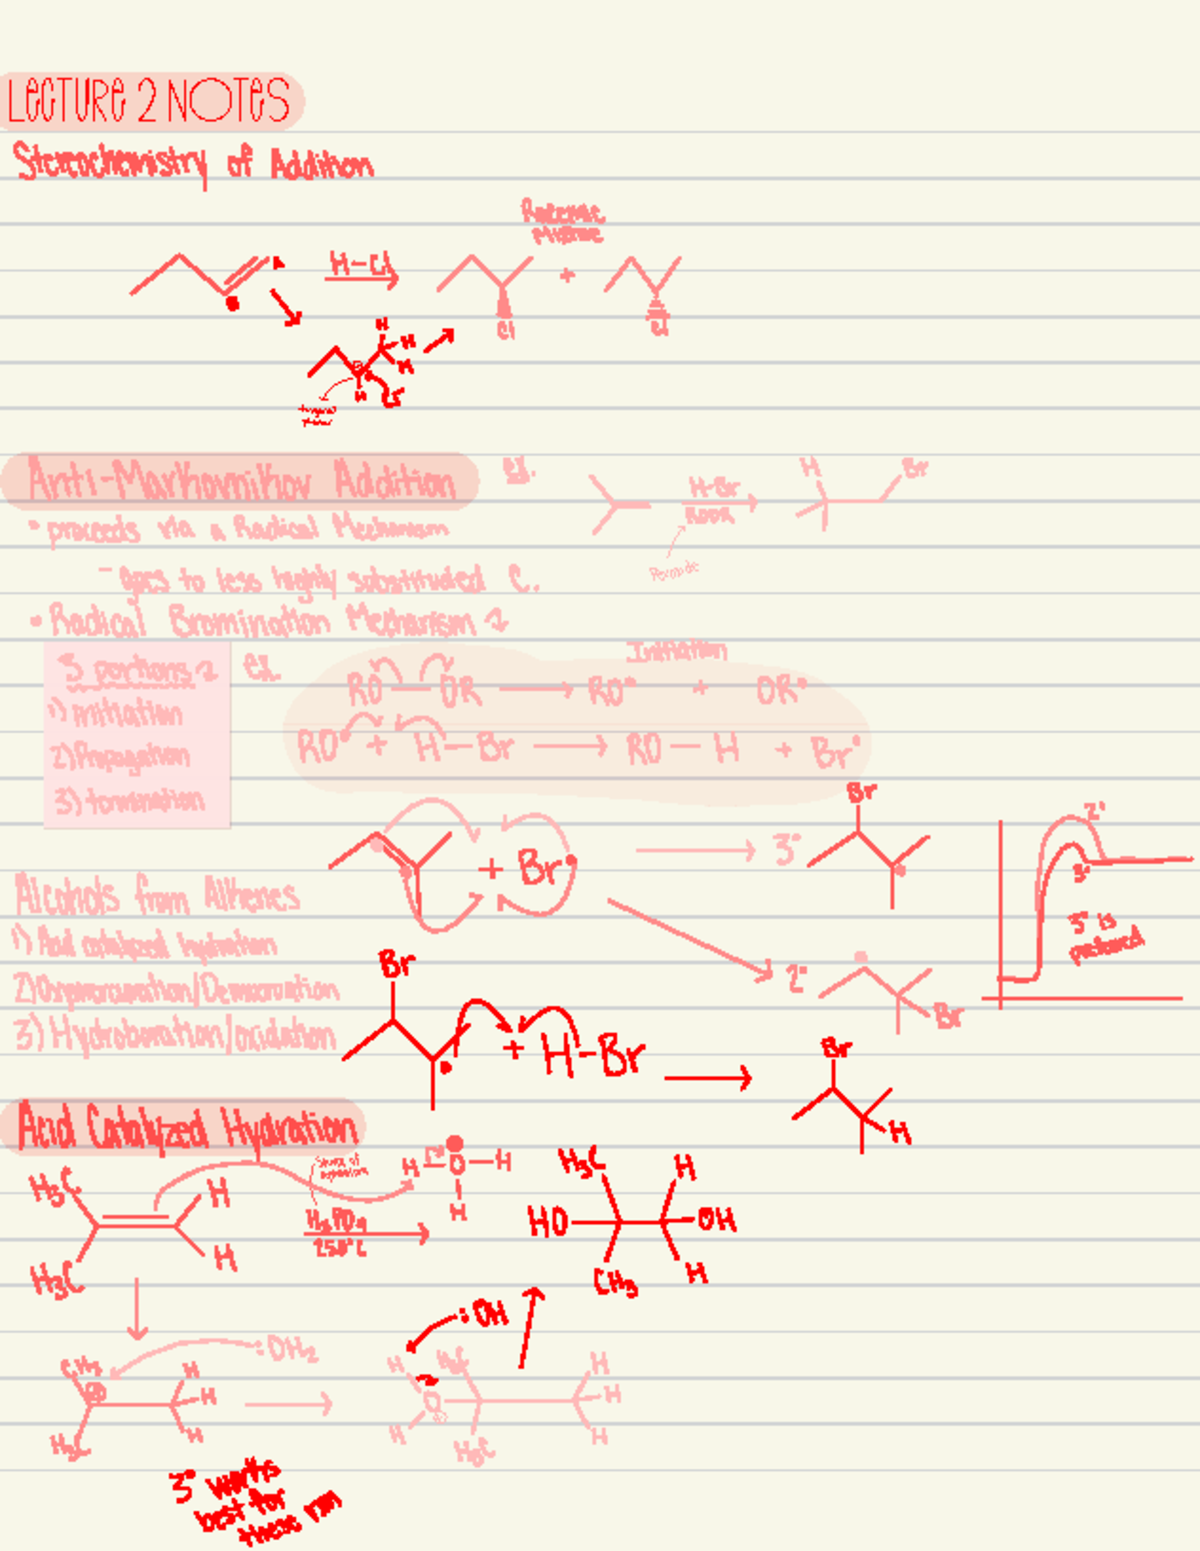 LECTURE 2 NOTES
Stereochemistry of Addition
Racemic
Mixture
H-Cl
+
Cl
Cl
H
H
H
H
Cl
Anti-Markovnikov Addition
ex.
H-Br
ROOR
Peroxide
H
Br
• proceeds via a Radical Mechanism
- goes to less highly substituted C.
• Radical Bromination Mechanism
3 portions
1) initiation
2) Propagation
3) termination
ex.
Initiation
RO — OR → RO• + OR•
RO• + H—Br → RO—H + Br•
+ Br•
3°
Br
2°
Br
2°
3°
3° is
preferred
Alcohols from Alkenes
1) Acid catalyzed hydration
2) Oxymercuration/Demercuration
3) Hydroboration/oxidation
Br
+ H-Br
Br
H
Acid Catalyzed Hydration
H3C
H3C
H
H
H3PO4
250°C
H-O-H
H
H3C
H
HO
OH
CH3
H
:OH
CH3
H3C
:OH2
H
H
H
H
O
H
H3C
H3C
H
H
H
3° works
best for
these rxn